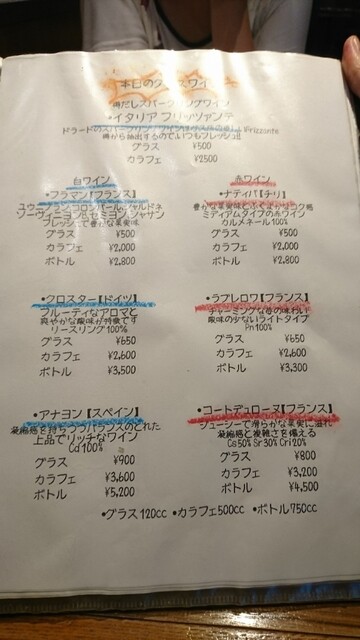 本日のグラスワイン
樽だしスパークリングワイン
•イタリア フリッツァンテ
Frizzante
樽から抽出するのでいつもフレッシュ!!
グラス ¥500
カラフェ ¥2500
白ワイン
•フラマン【フランス】
ソーヴィニヨンB.セミヨン.シャサン
フレッシュで豊かな果実味
グラス ¥500
カラフェ ¥2,000
ボトル ¥2.800
•クロスター【ドイツ】
フルーティなアロマと
爽やかな酸味が特徴です
リースリング100%
グラス ¥650
カラフェ ¥2,600
ボトル ¥3,500
•アナヨン【スペイン】
凝縮感を持ちつつバランスのとれた
上品でリッチなワイン
Cd100%
グラス ¥900
カラフェ ¥3,600
ボトル ¥5,200
赤ワイン
•ナティバ【チリ】
ミディアムタイプの赤ワイン
カルメネール100%
グラス ¥500
カラフェ ¥2,000
ボトル ¥2.800
•ラプレロワ【フランス】
チャーミングな苺の味わい
酸味の少ないライトタイプ
Pn100%
グラス ¥650
カラフェ ¥2,600
ボトル ¥3,300
•コートデュローヌ【フランス】
ジューシーで滑らかな果実に溢れ
凝縮感と複雑さを備える
Cs50% Sr30% Cri20%
グラス ¥800
カラフェ ¥3,200
ボトル ¥4,500
•グラス120cc •カラフェ500cc •ボトル750cc